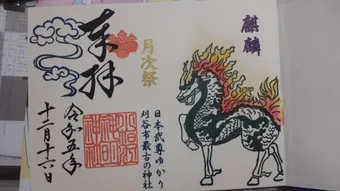 麒麟
月次祭
奉拝
日本武尊ゆかり
刈谷市最古の神社
令和五年
十二月十六日